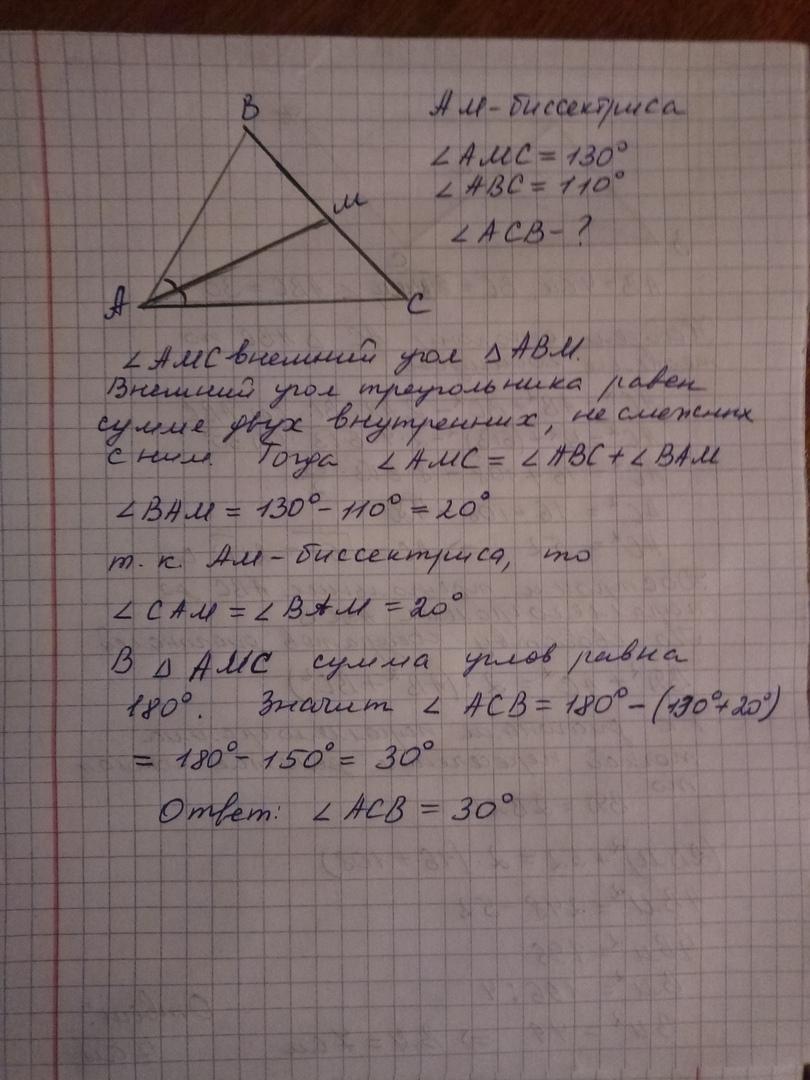 B
M
A
C
AM - биссектриса
∠AMC = 130°
∠ABC = 110°
∠ACB - ?
∠AMC внешний угол △ABM.
Внешний угол треугольника равен
сумме двух внутренних, не смежных
с ним. Тогда ∠AMC = ∠ABC + ∠BAM
∠BAM = 130° - 110° = 20°
т. к. AM - биссектриса, то
∠CAM = ∠BAM = 20°
В △AMC сумма углов равна
180°. Значит ∠ACB = 180° - (130° + 20°)
= 180° - 150° = 30°
Ответ: ∠ACB = 30°